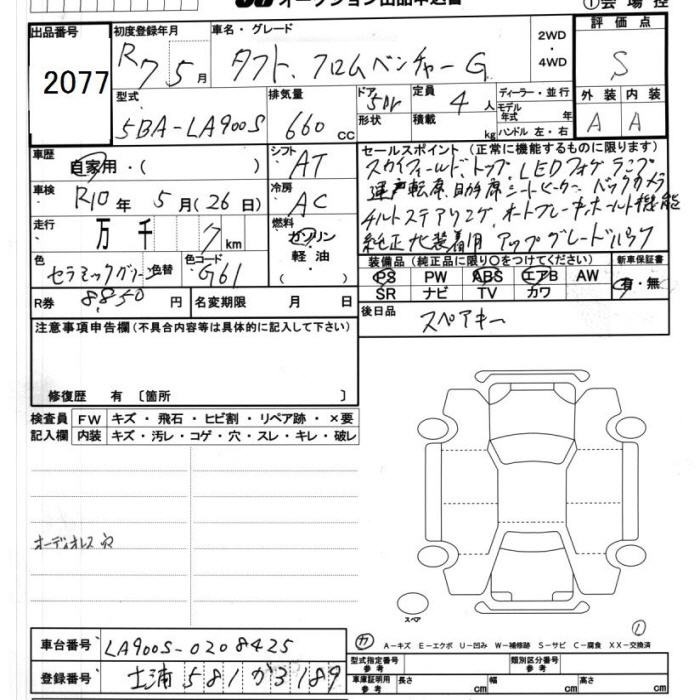 オークション出品申込書
①会場控
出品番号
2077
初度登録年月
R7 5月
車名・グレード
タフト、フロムベンチャーG
2WD
・
4WD
評価点
S
型式
5BA-LA900S
排気量
660 cc
ドア
5Dr
形状
定員
4人
積載
kg
ディーラー・並行
モデル年式 年
ハンドル 左・右
外装 内装
A A
車歴
自家用・( )
シフト
AT
セールスポイント(正常に機能するものに限ります)
スカイフィールドトップ、LEDフォグランプ
運転席、助手席シートヒーター バックカメラ
チルトステアリング、オートブレーキホールド機能
純正ナビ装着用 アップグレードパック
車検
R10年 5月(26日)
冷房
AC
走行
万 千 7km
燃料
ガソリン
軽油
( )
色
セラミックグリーン
色替
色コード
G61
装備品(純正品に限り○をつけてください)
新車保証書
PS PW ABS エアB AW
SR ナビ TV カワ
有・無
R券
8,850円
名変期限 月 日
後日品
スペアキー
注意事項申告欄(不具合内容等は具体的に記入して下さい)
修復歴 有〔箇所 〕
検査員記入欄
FW キズ・飛石・ヒビ割・リペア跡・×要
内装 キズ・汚レ・コゲ・穴・スレ・キレ・破レ
オーディオレス穴
スペア
車台番号
LA900S-0208425
登録番号
土浦 581 か 3189
カ
A-キズ E-エクボ U-凹み W-補修跡 S-サビ C-腐食 XX-交換済
型式指定番号
参考
類別区分番号
参考
車庫証明用
参考
長さ cm
幅 cm
高さ cm